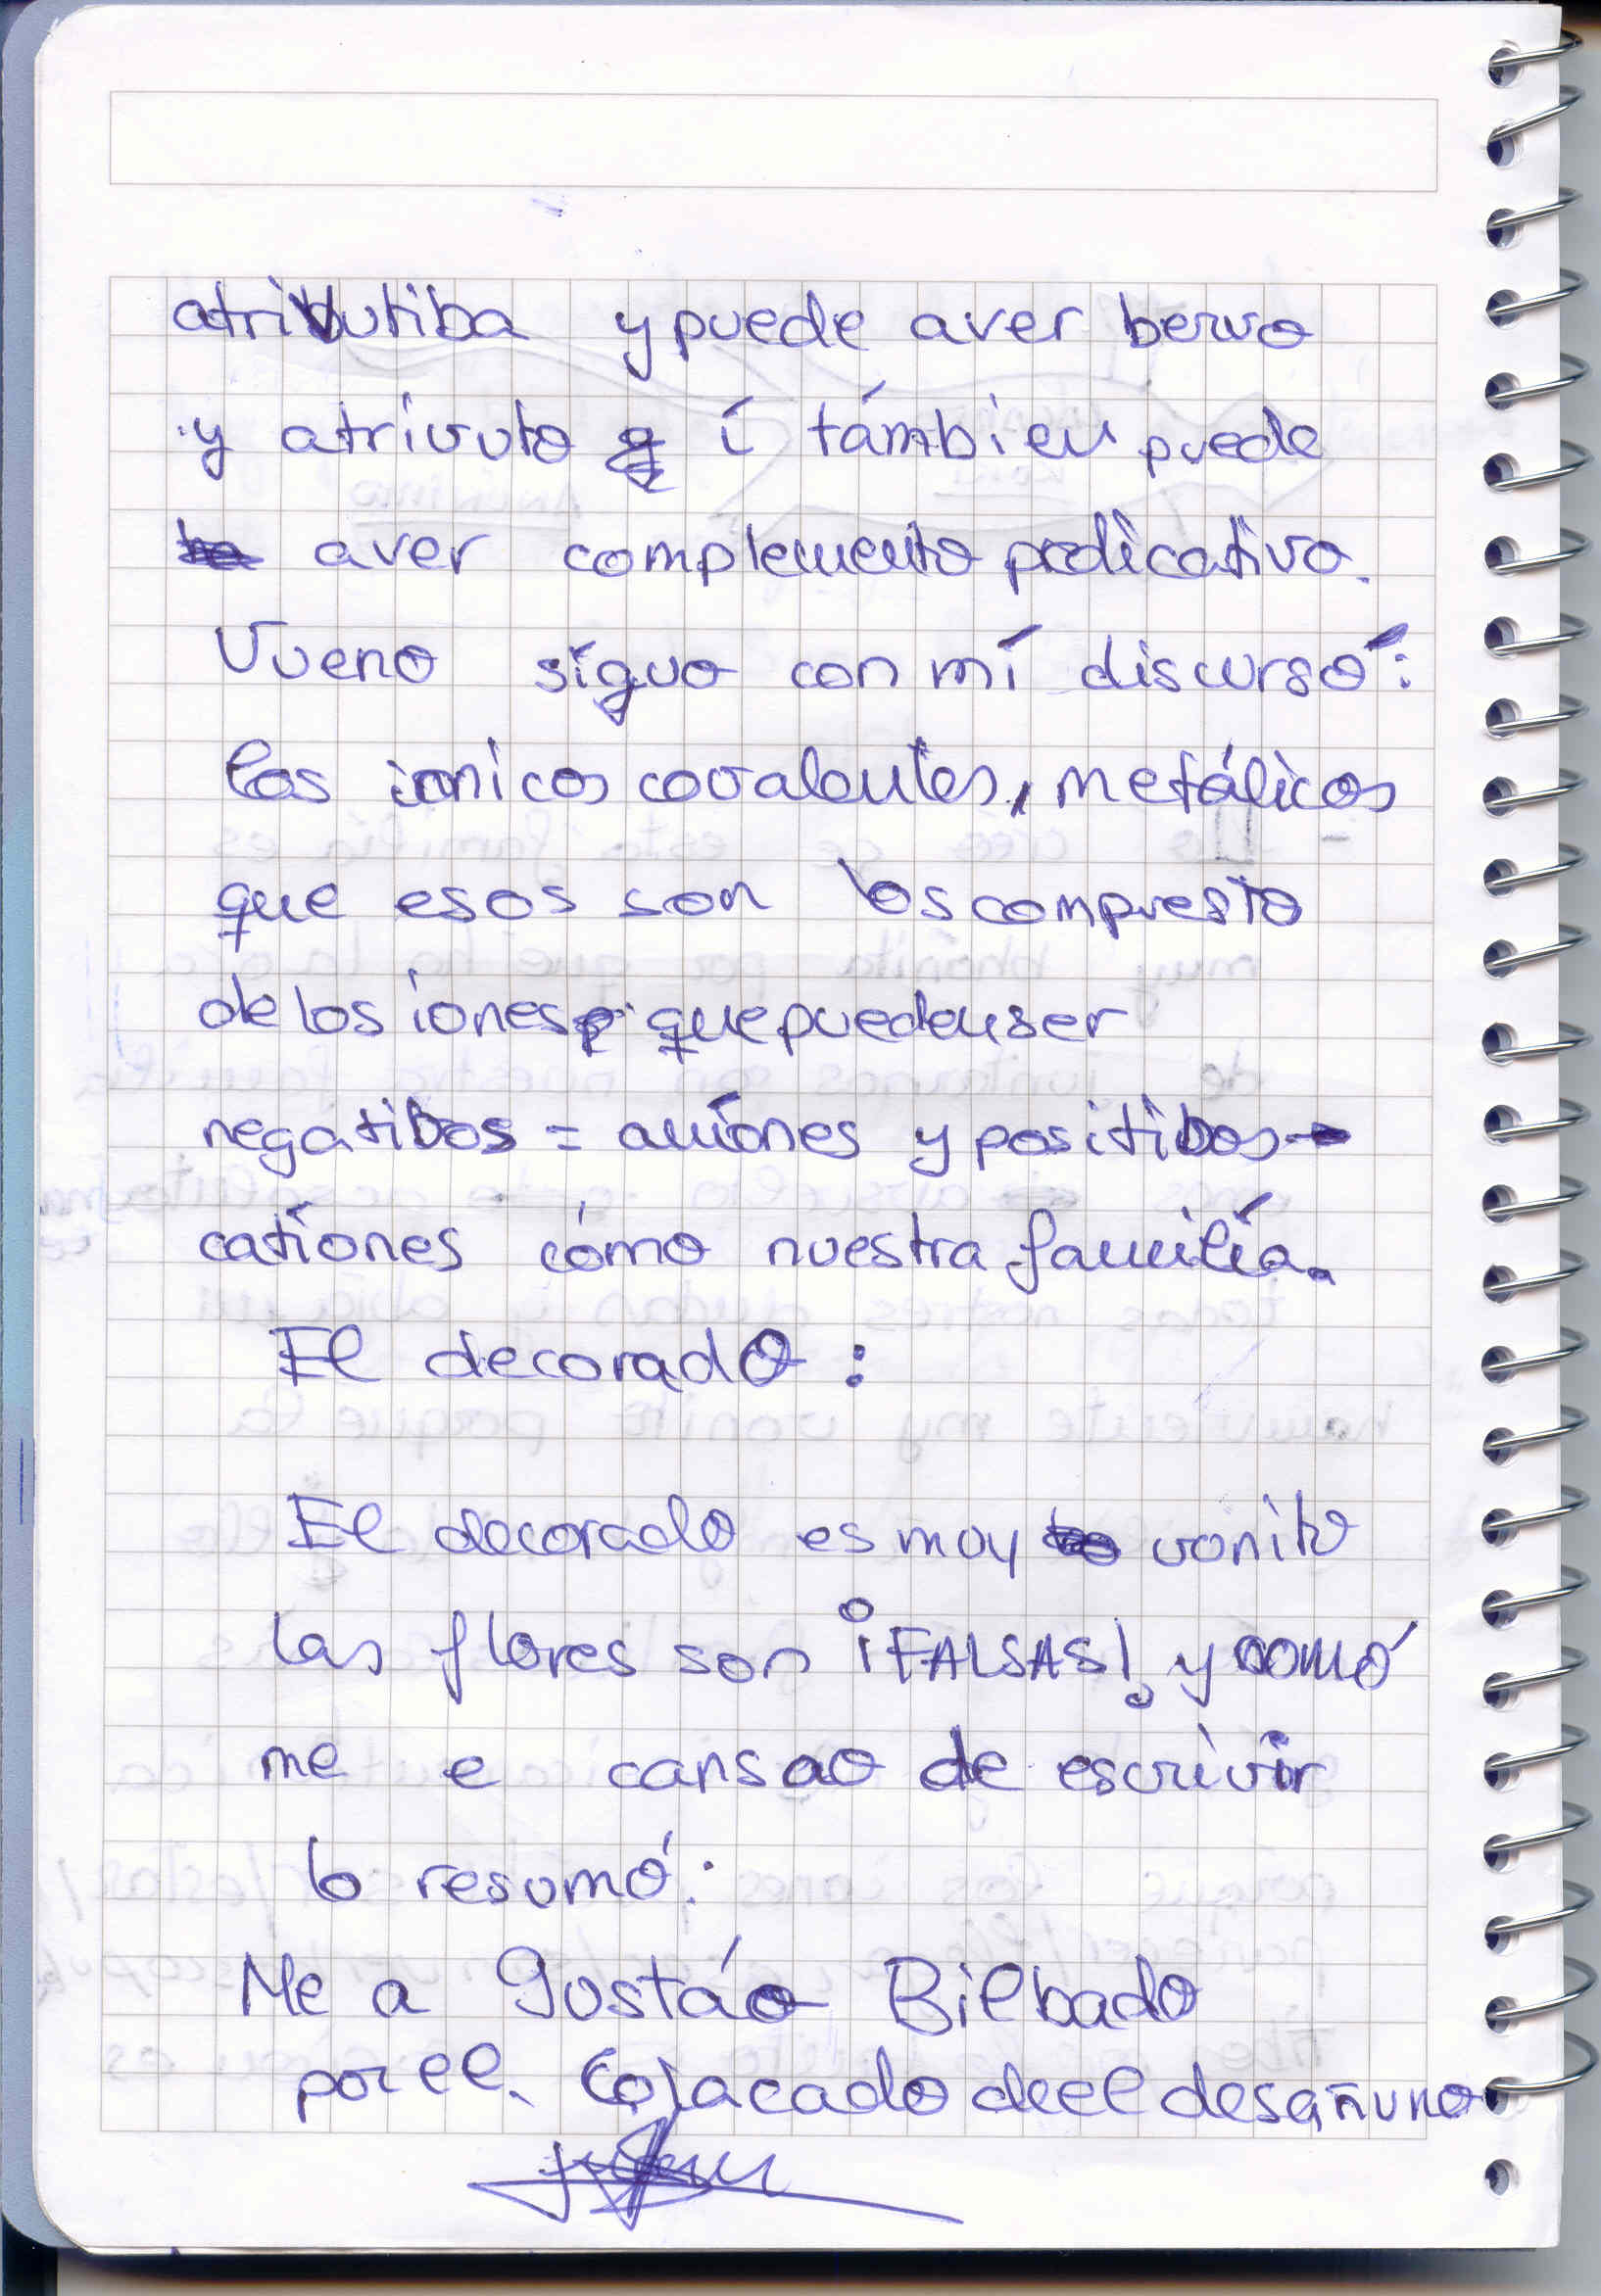 atributiba y puede aver bervo
y atrivuto í támbien puede
aver complemento predicativo.
Vueno síguo con mí discursó:
los ionicos covalentes, metálicos
que esos son los compresto
de los iones que pueden ser
negatibos = aniónes y positibos
catíones cómo nuestra familía.
El decorado:
El decorado es muy vonito
las flores son ¡FALSAS! y comó
me e cansao de escrivir
lo resumó:
Me a gustáo Bilbado
por el Colacado de el desañuno